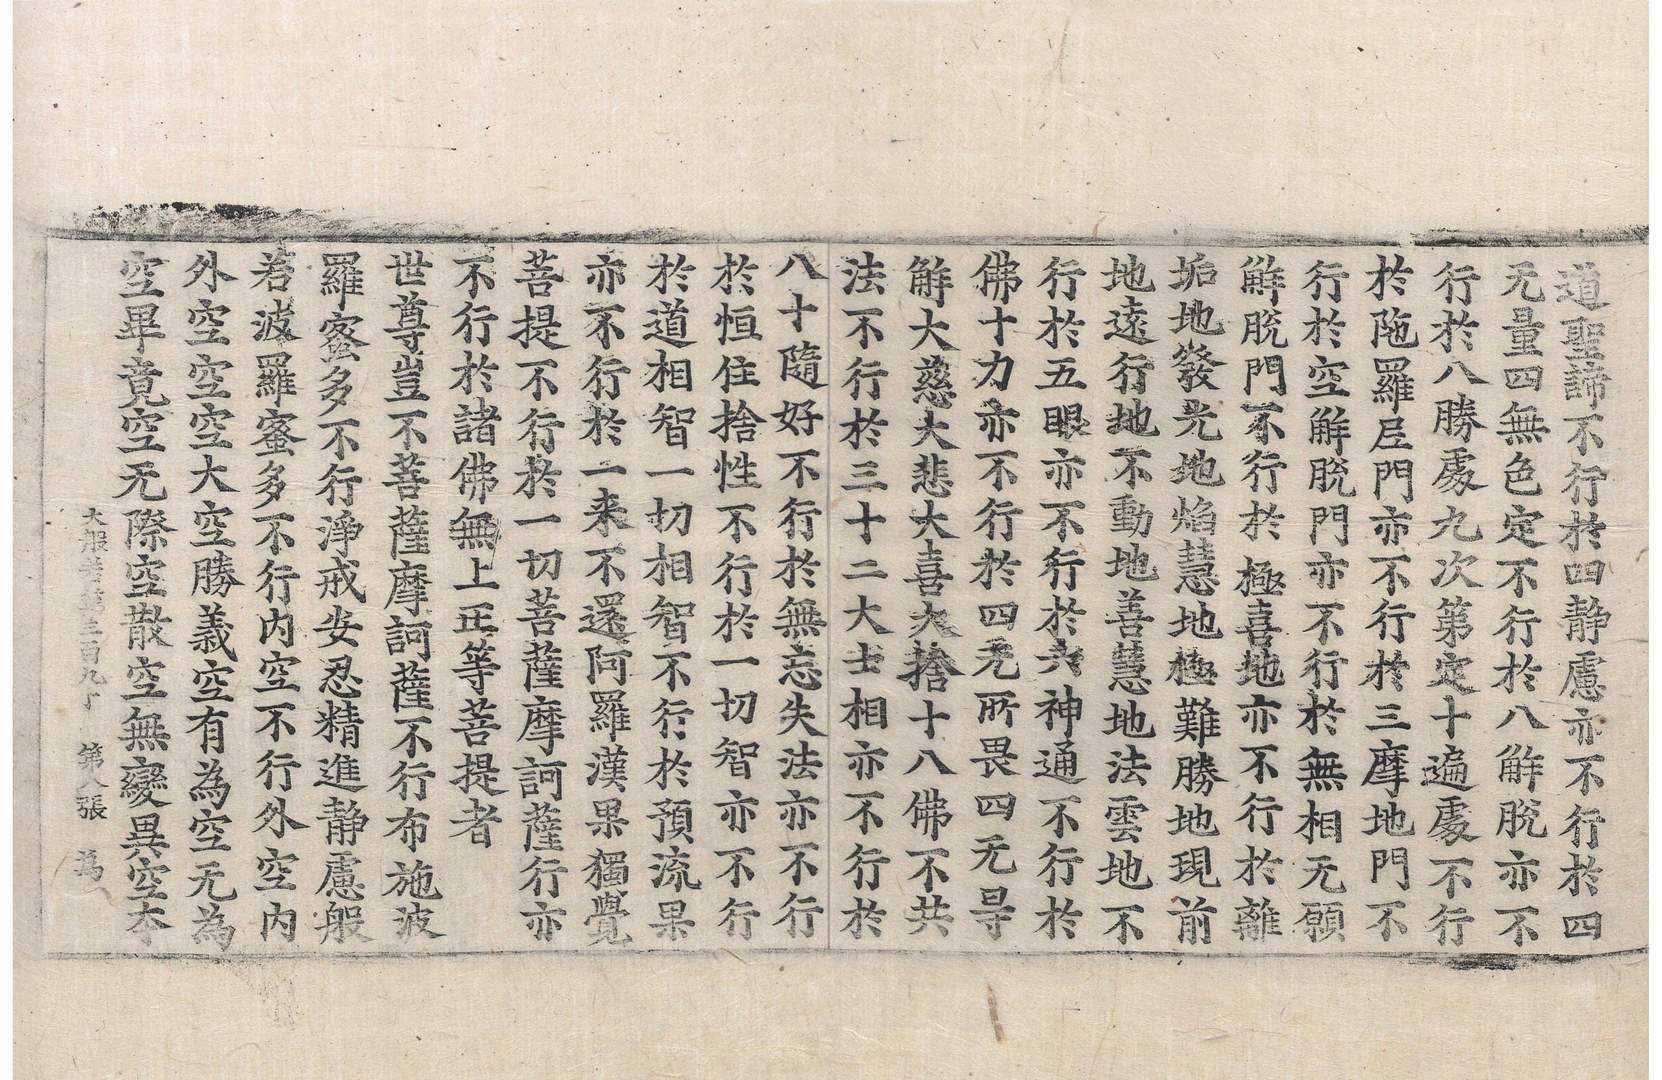 道聖諦不行於四静慮亦不行於四
无量四無色定不行於八解脫亦不
行於八勝處九次第定十遍處不行
於陁羅尼門亦不行於三摩地門不
行於空解脫門亦不行於無相无願
解脫門不行於極喜地亦不行於離
垢地發光地焰慧地極難勝地現前
地遠行地不動地善慧地法雲地不
行於五眼亦不行於六神通不行於
佛十力亦不行於四无所畏四无㝵
解大慈大悲大喜大捨十八佛不共
法不行於三十二大士相亦不行於
八十隨好不行於無忘失法亦不行
於恒住捨性不行於一切智亦不行
於道相智一切相智不行於預流果
亦不行於一来不還阿羅漢果獨覺
菩提不行於一切菩薩摩訶薩行亦
不行於諸佛無上正等菩提者
世尊豈不菩薩摩訶薩不行布施波
羅蜜多不行淨戒安忍精進静慮般
若波羅蜜多不行内空不行外空内
外空空空大空勝義空有為空无為
空畢竟空无際空散空無變異空夲
大般若第三百九丁 第八張 為